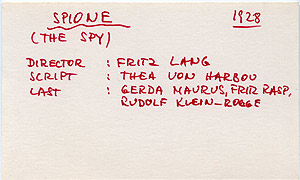 SPIONE 1928
(THE SPY)
DIRECTOR : FRITZ LANG
SCRIPT : THEA VON HARBOU
CAST : GERDA MAURUS, FRITZ RASP,
RUDOLF KLEIN-ROGGE